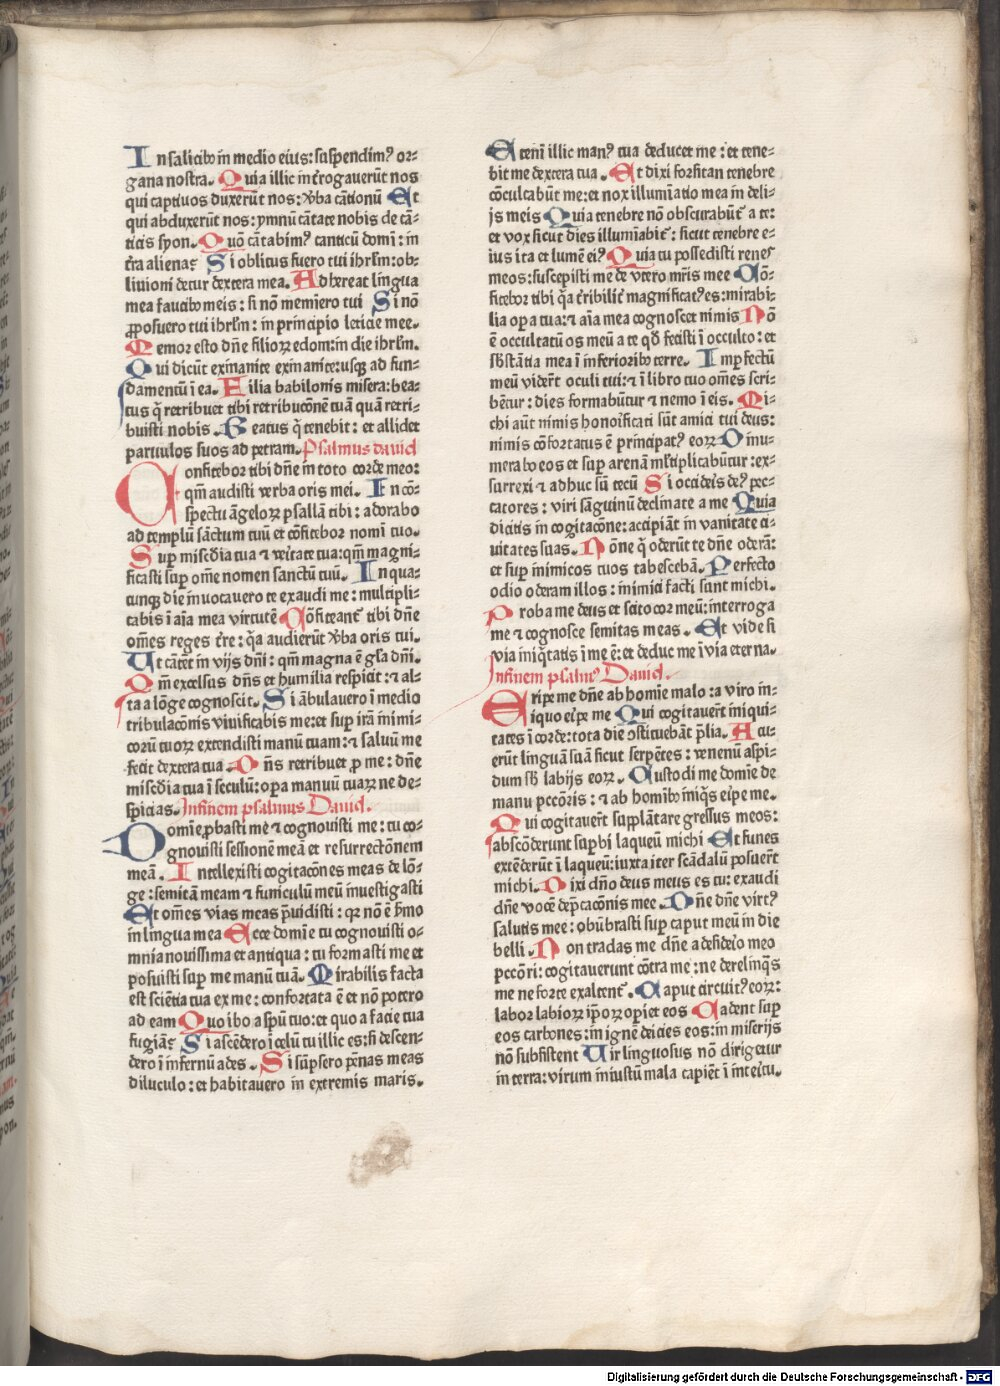 In salicibꝰ in medio eius: suspendimꝰ or-
gana nostra. Quia illic int̄rogauerūt nos
qui captiuos duxerūt nos: v̄ba cātionū Et
qui abduxerūt nos: ymnū cātate nobis de cā-
ticis syon. Quō cātabimꝰ canticū domī: in
t̄ra aliena? Si oblitus fuero tui ihrl̄m: ob-
liuioni detur dextera mea. Adhereat lingua
mea faucibꝰ meis: si nō meminero tui Si nō
ꝓposuero tui ihrl̄m: in principio leticie mee.
Memor esto dn̄e filioꝝ edom: in die ihrl̄m.
Qui dicūt exinanite exinanite: usqꝫ ad fun-
damentū ī ea. Filia babilonis misera: bea-
tus q̄ retribuet tibi retribucōnē tuā quā retri-
buisti nobis. Beatus q̄ tenebit: et allidet
paruulos suos ad petram. Psalmus dauid
Confitebor tibi dn̄e in toto corde meo:
qm̄ audisti verba oris mei. In cō-
spectu āgeloꝝ psallā tibi: adorabo
ad templū sānctum tuū et cōfitebor nomī tuo.
Sup miscd̄ia tua ⁊ vĩtate tua: qm̄ magni-
ficasti sup om̄e nomen sanctū tuū. In qua-
cunqꝫ die inuocauero te exaudi me: multipli-
cabis ī aīa mea virtutē Cōfiteant᷑ tibi dn̄e
om̄es reges t̄re: q̄a audierūt v̄ba oris tui.
Ut cātēt in vijs dn̄i: qm̄ magna ē gl̄a dn̄i.
Qm̄ excelsus dn̄s et humilia respicit: ⁊ al-
ta a lōge cognoscit. Si ābulauero ī medio
tribulacōnis viuificabis me: et sup irā inimi-
corū tuoꝝ extendisti manū tuam: ⁊ saluū me
fecit dextera tua. Dn̄s retribuet ꝓ me: dn̄e
miscd̄ia tua ī seculū: opa manuū tuaꝝ ne de-
spicias. Infinem psalmus Dauid.
Domīe ꝓbasti me ⁊ cognouisti me: tu co-
gnouisti sessionē meā et resurrectōnem
meā. Intellexisti cogitacōnes meas de lōn-
ge: semitām meam ⁊ funiculū meū inuestigasti
Et om̄es vias meas p̄uidisti: qꝛ nō ē ßmo
in lingua mea Ecce domīe tu cognouisti o-
mnia nouissima et antiqua: tu formasti me et
posuisti sup me manū tuā. Mirabilis facta
est sciētia tua ex me: confortata ē et nō potero
ad eam Quo ibo a spū tuo: et quo a facie tua
fugiā? Si ascēdero ī celū tu illic es: si descen-
dero ī infernū ades. Si sūpsero pēnas meas
diluculo: et habitauero in extremis maris.
Etenī illic manꝰ tua deducet me: et tene-
bit me dextera tua. Et dixi forsitan tenebre
cōculcabūt me: et nox illumīatio mea in deli-
ijs meis Quia tenebre nō obscurabūt᷑ a te:
et vox sicut dies illumīabit᷑: sicut tenebre e-
ius ita et lumē eiꝰ. Quia tu possedisti renes
meos: suscepisti me de vtero mr̄is mee Cō-
fitebor tibi q̄a t̄ribilit᷑ magnificatꝰ es: mirabi-
lia opa tua: ⁊ aīa mea cognoscet nimis Nō
ē occultatū os meū a te qd̄ fecisti ī occulto: et
sb̄stātia mea ī inferioribꝰ terre. Impfectū
meū vider̄t oculi tui: ⁊ ī libro tuo om̄es scri-
bētur: dies formabūtur ⁊ nemo ī eis. Mi-
chi aūt nimis honoīficati sūnt amici tui deus:
nimis cōfortatus ē principatꝰ eoꝝ Dinu-
merabo eos et sup arenā ml̄tiplicabūtur: ex-
surrexi ⁊ adhuc sū tecū Si occideis deꝰ pec-
catores: viri sāguinū declinate a me Quia
dicitis in cogitacōne: accipiāt in vanitate ci-
uitates suas. Nōne q̄ oderūt te dn̄e oderā:
et sup inimicos tuos tabescebā. Perfecto
odio oderam illos: inimici facti sunt michi.
Proba me deus et scito cor meū: interroga
me ⁊ cognosce semitas meas. Et vide si
via iniq̄tatis ī me ē: et deduc me ī via eterna.
Infinem psalmꝰ Dauid.
Eripe me dn̄e ab homīe malo: a viro in-
iquo eipe me Qui cogitauer̄t iniqui-
tates ī corde: tota die ꝯstituebāt p̄lia. Acu-
erūt linguā suā sicut serpētes: venenū aspi-
dum sb̄ labijs eoꝝ. Custodi me domīe de
manu pccōris: ⁊ ab homībꝰ iniq̄s eipe me.
Qui cogitauer̄t supplātare gressus meos:
abscōderunt supbi laqueū michi Et funes
extēderūt ī laqueū: iuxta iter scādalū posuer̄t
michi. Dixi dn̄o deus meus es tu: exaudi
dn̄e vocē dep̄cacōnis mee. Dn̄e dn̄e virtꝰ
salutis mee: obūbrasti sup caput meū in die
belli. Non tradas me dn̄e a desideio meo
pccōri: cogitauerunt cōtra me: ne derelinq̄s
me ne forte exaltent᷑. Caput circuitꝰ eoꝝ:
labor labioꝝ ip̄oꝝ opiet eos Cadent sup
eos carbones: in ignē deicies eos: in miserijs
nō subsistent Uir linguosus nō dirigetur
in terra: virum iniustū mala capiēt ī inteitu.
Digitalisierung gefördert durch die Deutsche Forschungsgemeinschaft - DFG